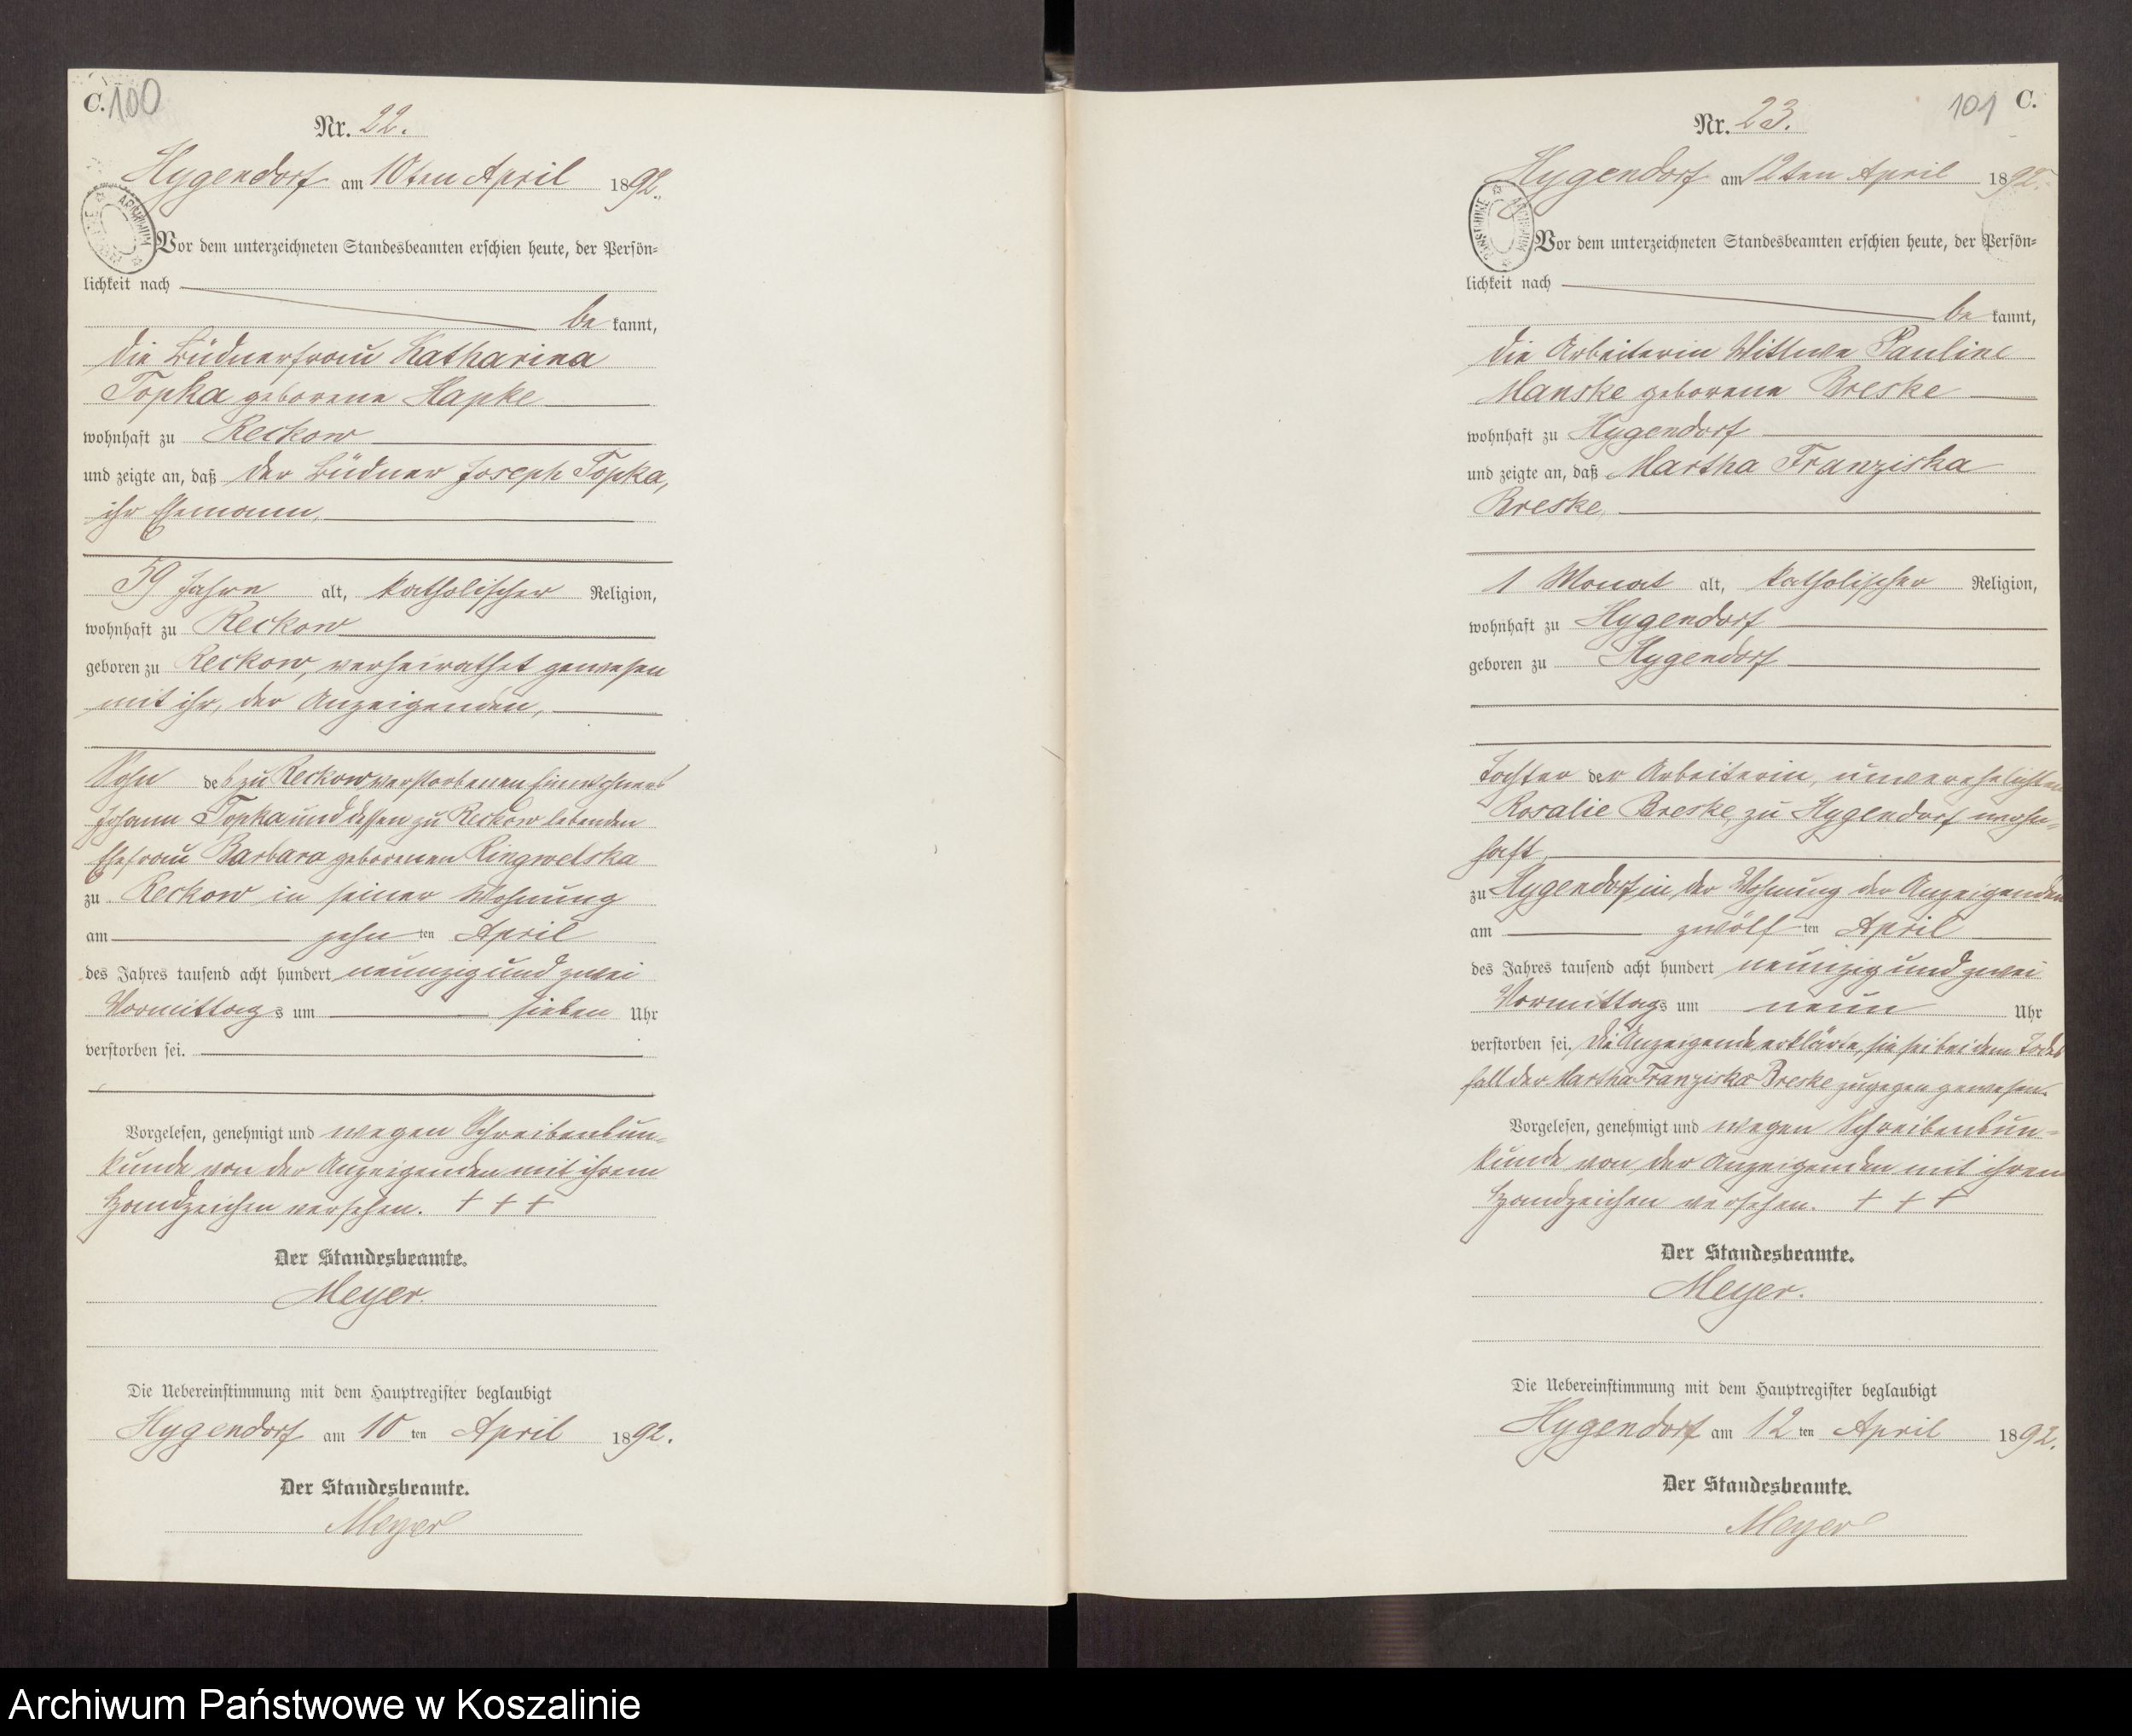 C. 100
Nr. 22.
Hygendorf am 10ten April 1892.
Vor dem unterzeichneten Standesbeamten erschien heute, der Persön=
lichkeit nach
be kannt,
die Büdnerfrau Katharina
Topka geborene Hapke
wohnhaft zu Reckow
und zeigte an, daß der Büdner Joseph Topka,
ihr Ehemann,
59 Jahre alt, katholischer Religion,
wohnhaft zu Reckow
geboren zu Reckow, verheirathet gewesen
mit ihr, der Anzeigenden,
Sohn des zu Reckow verstorbenen Einwohners
Johann Topka und dessen zu Reckow lebenden
Ehefrau Barbara geborenen Ringwelska
zu Reckow in seiner Wohnung
am zehn ten April
des Jahres tausend acht hundert neunzig und zwei
Vormittags um sieben Uhr
verstorben sei.
Vorgelesen, genehmigt und wegen Schreibensun=
kunde von der Anzeigenden mit ihrem
Handzeichen versehen. + + +
Der Standesbeamte.
Meyer.
Die Uebereinstimmung mit dem Hauptregister beglaubigt
Hygendorf am 10 ten April 1892.
Der Standesbeamte.
Meyer
101 C.
Nr. 23.
Hygendorf am 12ten April 1892.
Vor dem unterzeichneten Standesbeamten erschien heute, der Persön=
lichkeit nach
be kannt,
die Arbeiterin Wittwe Pauline
Manske geborene Breske
wohnhaft zu Hygendorf
und zeigte an, daß Martha Franziska
Breske,
1 Monat alt, katholischer Religion,
wohnhaft zu Hygendorf
geboren zu Hygendorf
Tochter der Arbeiterin, unverehelichten
Rosalie Breske, zu Hygendorf wohn=
haft,
zu Hygendorf in der Wohnung der Anzeigenden
am zwölf ten April
des Jahres tausend acht hundert neunzig und zwei
Vormittags um neun Uhr
verstorben sei. Die Anzeigende erklärte, sie sei bei dem Todes
fall der Martha Franziska Breske zugegen gewesen.
Vorgelesen, genehmigt und wegen Schreibensun=
kunde von der Anzeigenden mit ihrem
Handzeichen versehen. + + +
Der Standesbeamte.
Meyer.
Die Uebereinstimmung mit dem Hauptregister beglaubigt
Hygendorf am 12 ten April 1892.
Der Standesbeamte.
Meyer
Archiwum Państwowe w Koszalinie